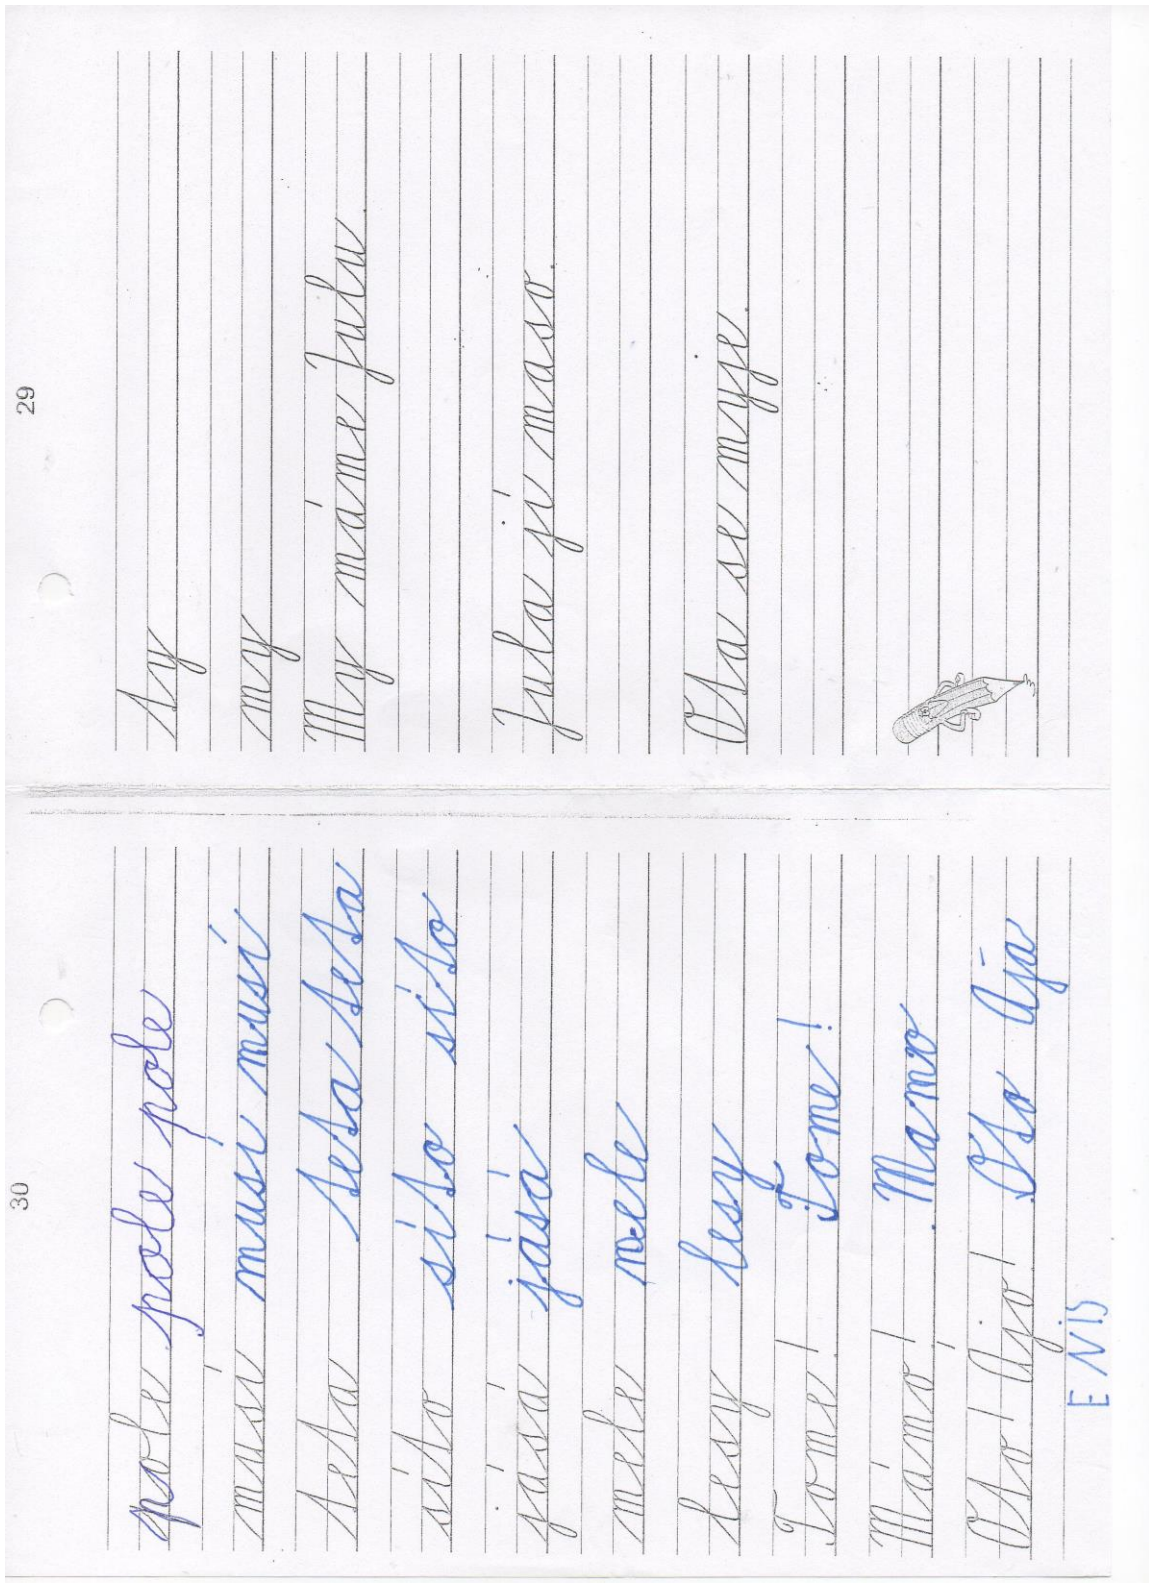 30
pole pole pole
musí musí musí
teta teta teta
síto síto síto
jásá jásá
mele mele
lesy lesy
Tome! Tome!
Mámo! Mamo
Oto! Ajo! Oto Aja
E Nis
29
ty
my
My máme Julu.
Jula jí maso.
Ota se myje.